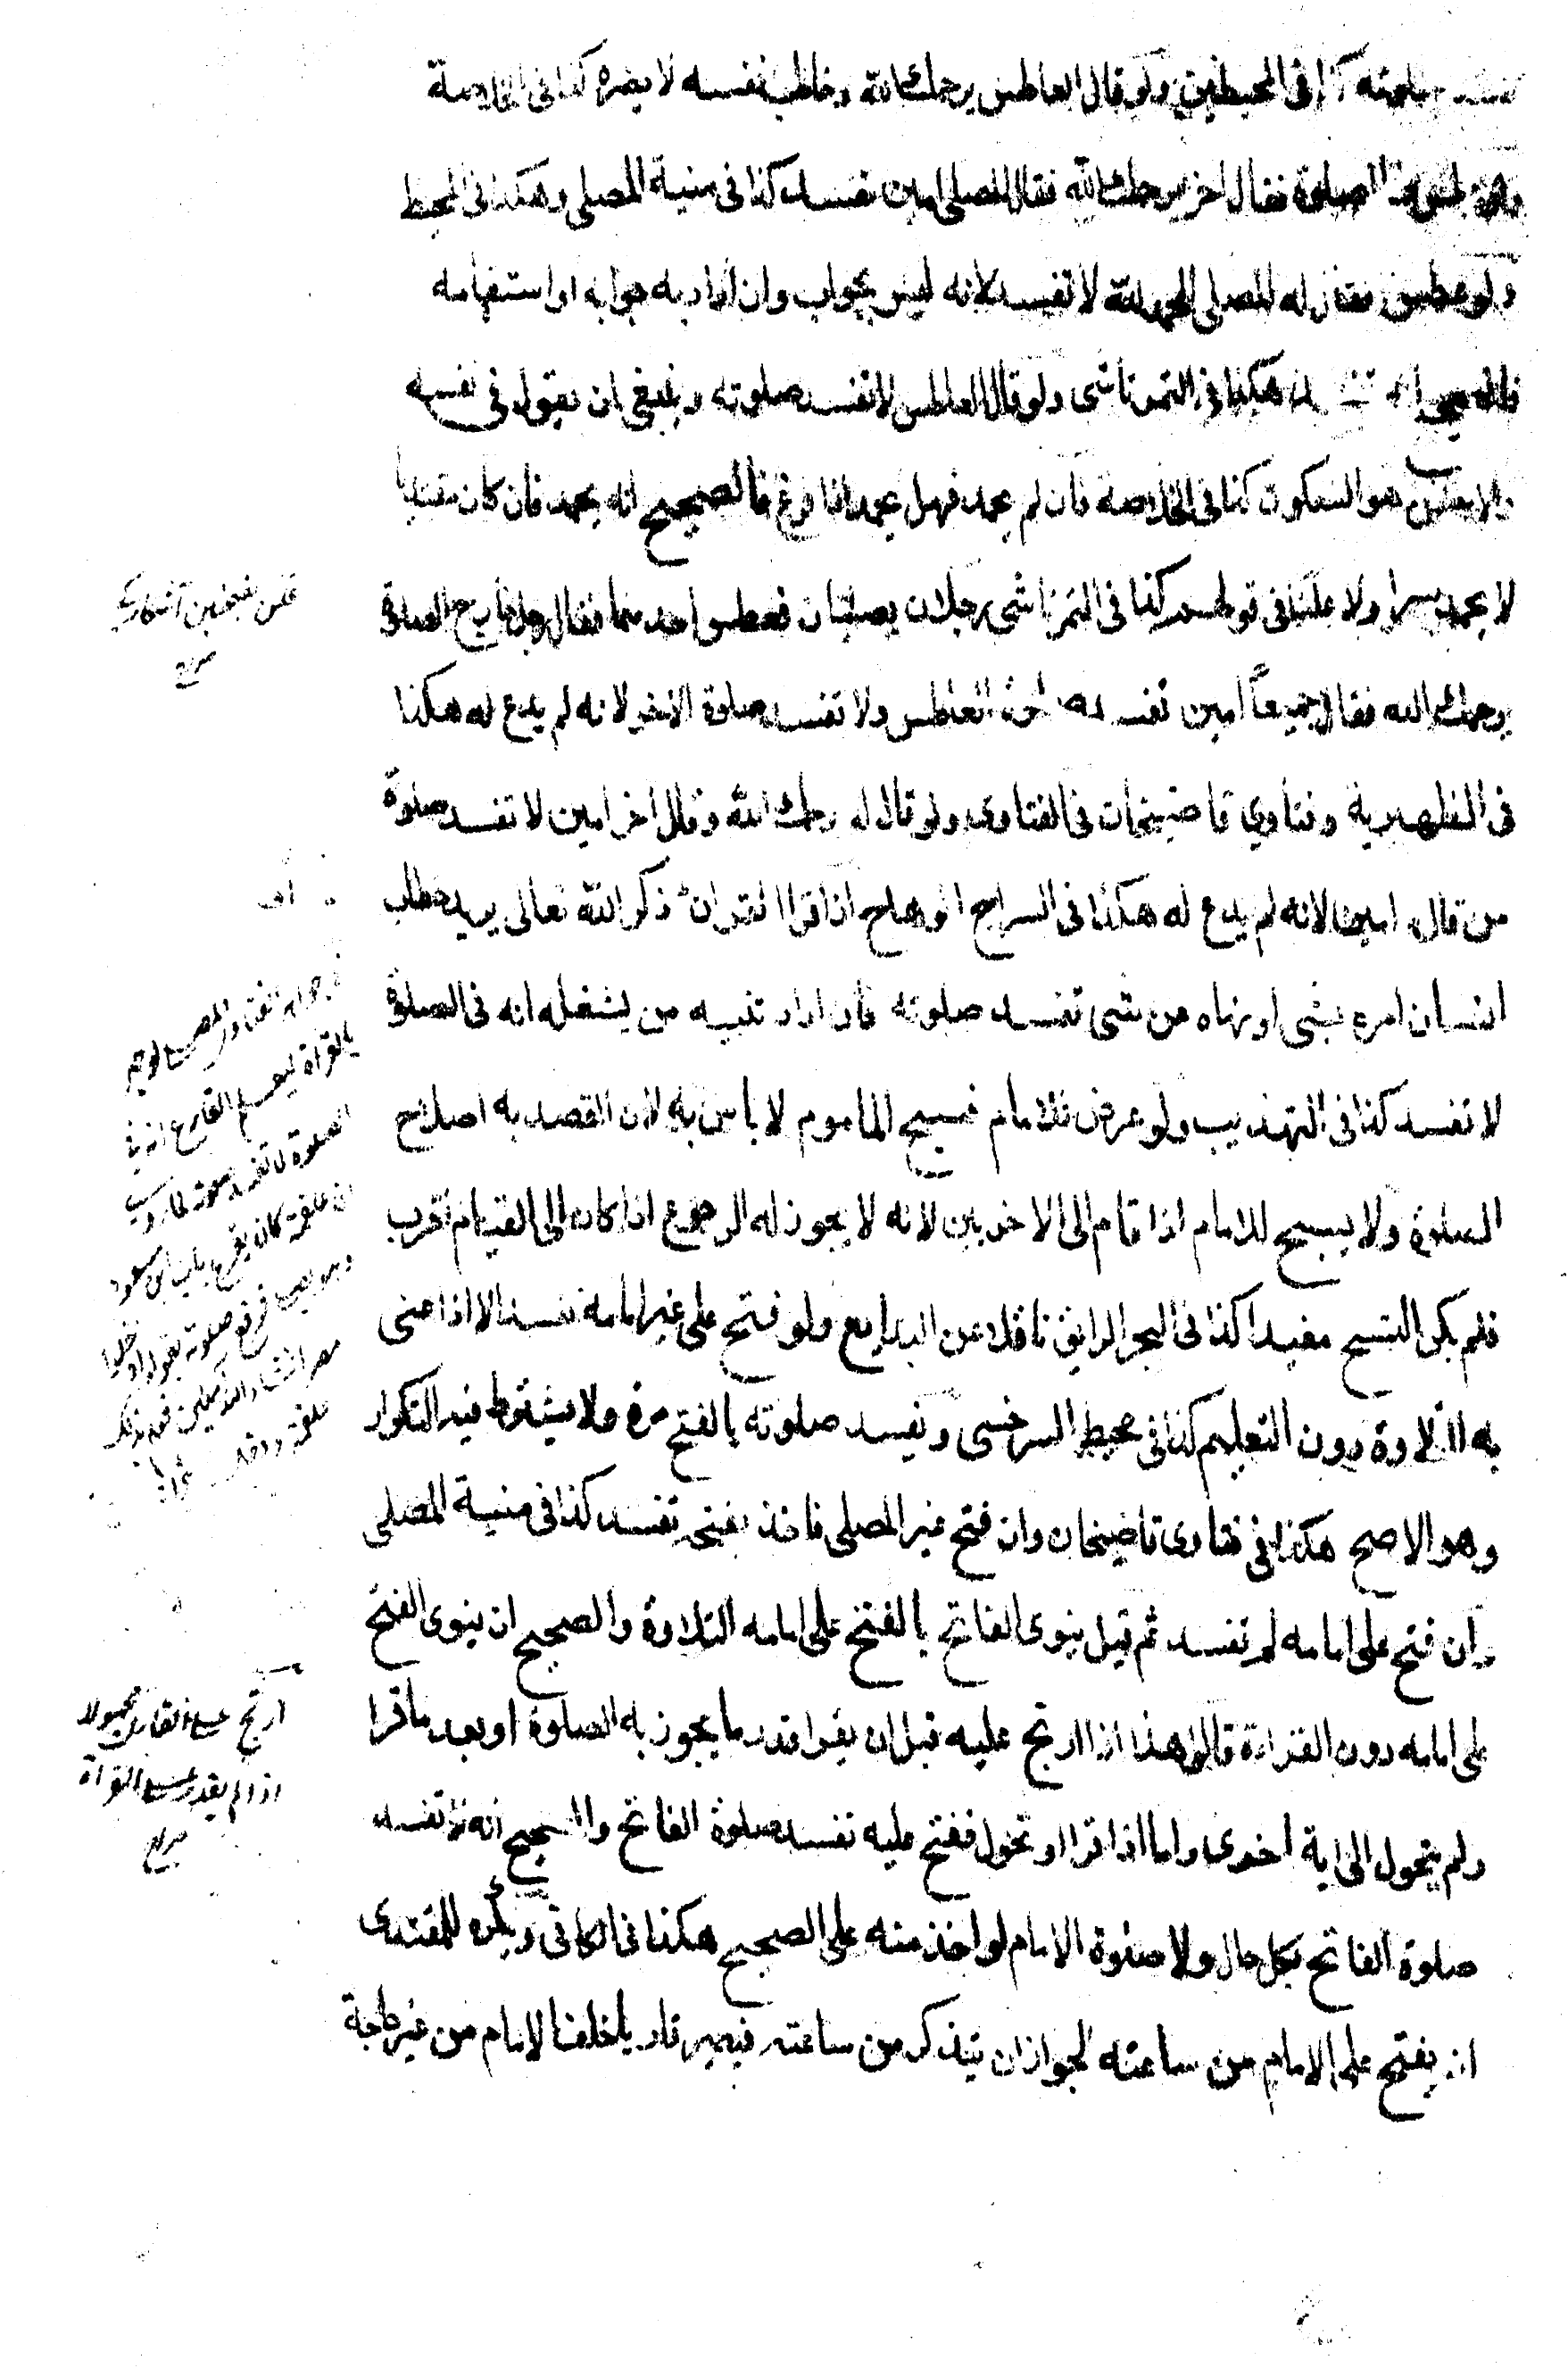 صلوته كذا فى المحيطين ولو قال العاطس يرحمك الله وخاطب نفسه لا يضره كذا فى الخلاصة
الصلوة فقال اخر يرحمك الله فقال المصلى امين تفسد كذا فى منية المصلى وهكذا فى المحيط
ولو عطس فقال له المصلى الحمد لله لا تفسد لانه ليس بجواب وان اراد به جوابه او استفهامه
فالصحيح انه تفسد هكذا فى التمرتاشى ولو قال العاطس لا تفسد صلوته وينبغى ان يقول فى نفسه
والاحسن هو السكوت كذا فى الخلاصة فان لم يحمد فهل يحمد اذا فرغ فالصحيح انه يحمد فان كان مقتديا
لا يحمد سرا ولا علنا فى قولهم كذا فى التمرتاشى رجلان يصليان فعطس احدهما فقال رجل خارج الصلوة
يرحمك الله فقالا جميعاً امين تفسد صلوة العاطس ولا تفسد صلوة الاخر لانه لم يدع له هكذا
فى الظهيرية وفتاوي قاضيخان فى الفتاوى ولو قال له يرحمك الله وقال اخر امين لا تفسد صلوة
من قال امين لانه لم يدع له هكذا فى السراج الوهاج اذا قرا القران او ذكر الله تعالى يريد خطاب
انسان امره بشى او نهاه عن شى تفسد صلوته فان اراد تنبيه من يشغله انه فى الصلوة
لا تفسد كذا فى التهذيب ولو عرض للامام فسبح الماموم لا باس به لان القصد به اصلاح
الصلوة ولا يسبح للامام اذا قام الى الاخريين لانه لا يجوز له الرجوع اذا كان الى القيام اقرب
فلم يكن التسبيح مفيدا كذا فى البحر الرايق ناقلا عن البدايع ولو فتح على غير امامه تفسد الا اذا عنى
به التلاوة دون التعليم كذا فى محيط السرخسى وتفسد صلوته بالفتح مرة ولا يشترط فيه التكرار
وهو الاصح هكذا فى فتاوى قاضيخان وان فتح غير المصلى فاخذ بفتحه تفسد كذا فى منية المصلى
وان فتح على امامه لم تفسد ثم قيل ينوى الفاتح بالفتح على امامه التلاوة والصحيح ان ينوى الفتح
على امامه دون القراءة قالوا هذا اذا ارتج عليه قبل ان يقرا قدر ما يجوز به الصلوة او بعد ما قرا
ولم يتحول الى اية اخرى واما اذا قرا او تحول ففتح عليه تفسد صلوة الفاتح والصحيح انه لا تفسد
صلوة الفاتح بكل حال ولا صلوة الامام لو اخذ منه على الصحيح هكذا فى الكافى ويكره للمقتدى
ان يفتح على الامام من ساعته لجواز ان يتذكر من ساعته فيصير قاريا خلف الامام من غير حاجة
علن بفتحتين آشكارا
صراح
بالقرآة ليعلم القارع انه فى
الصلوة لا تفسد صلوته لما روى
ان علقمة كان يقرع باب ابن مسعود
علقمة ودخل
ارتج على القارى مجهولا
اذا لم يقدر على القرآة
صراح